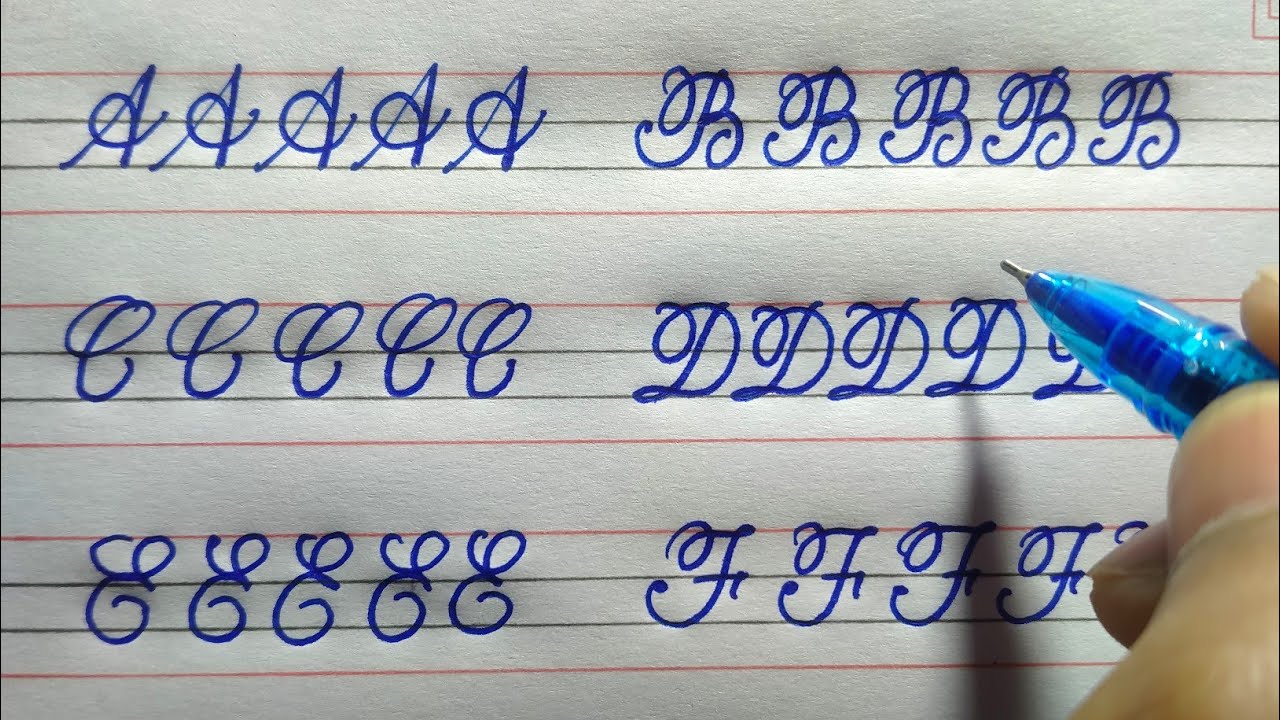 A A A A A B B B B B
C C C C C D D D D D
E E E E E F F F F